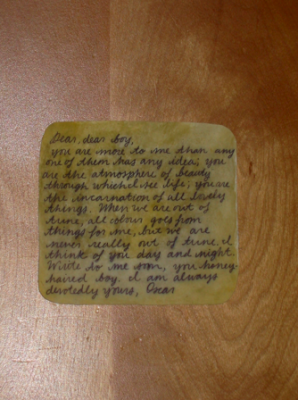 Dear, dear boy,
you are more to me than any
one of them has any idea; you
are the atmosphere of beauty
through which I see life; you are
the incarnation of all lovely
things. When we are out of
tune, all colour goes from
things for me, but we are
never really out of tune. I
think of you day and night.
Write to me soon, you honey-
haired boy. I am always
devotedly yours, Oscar